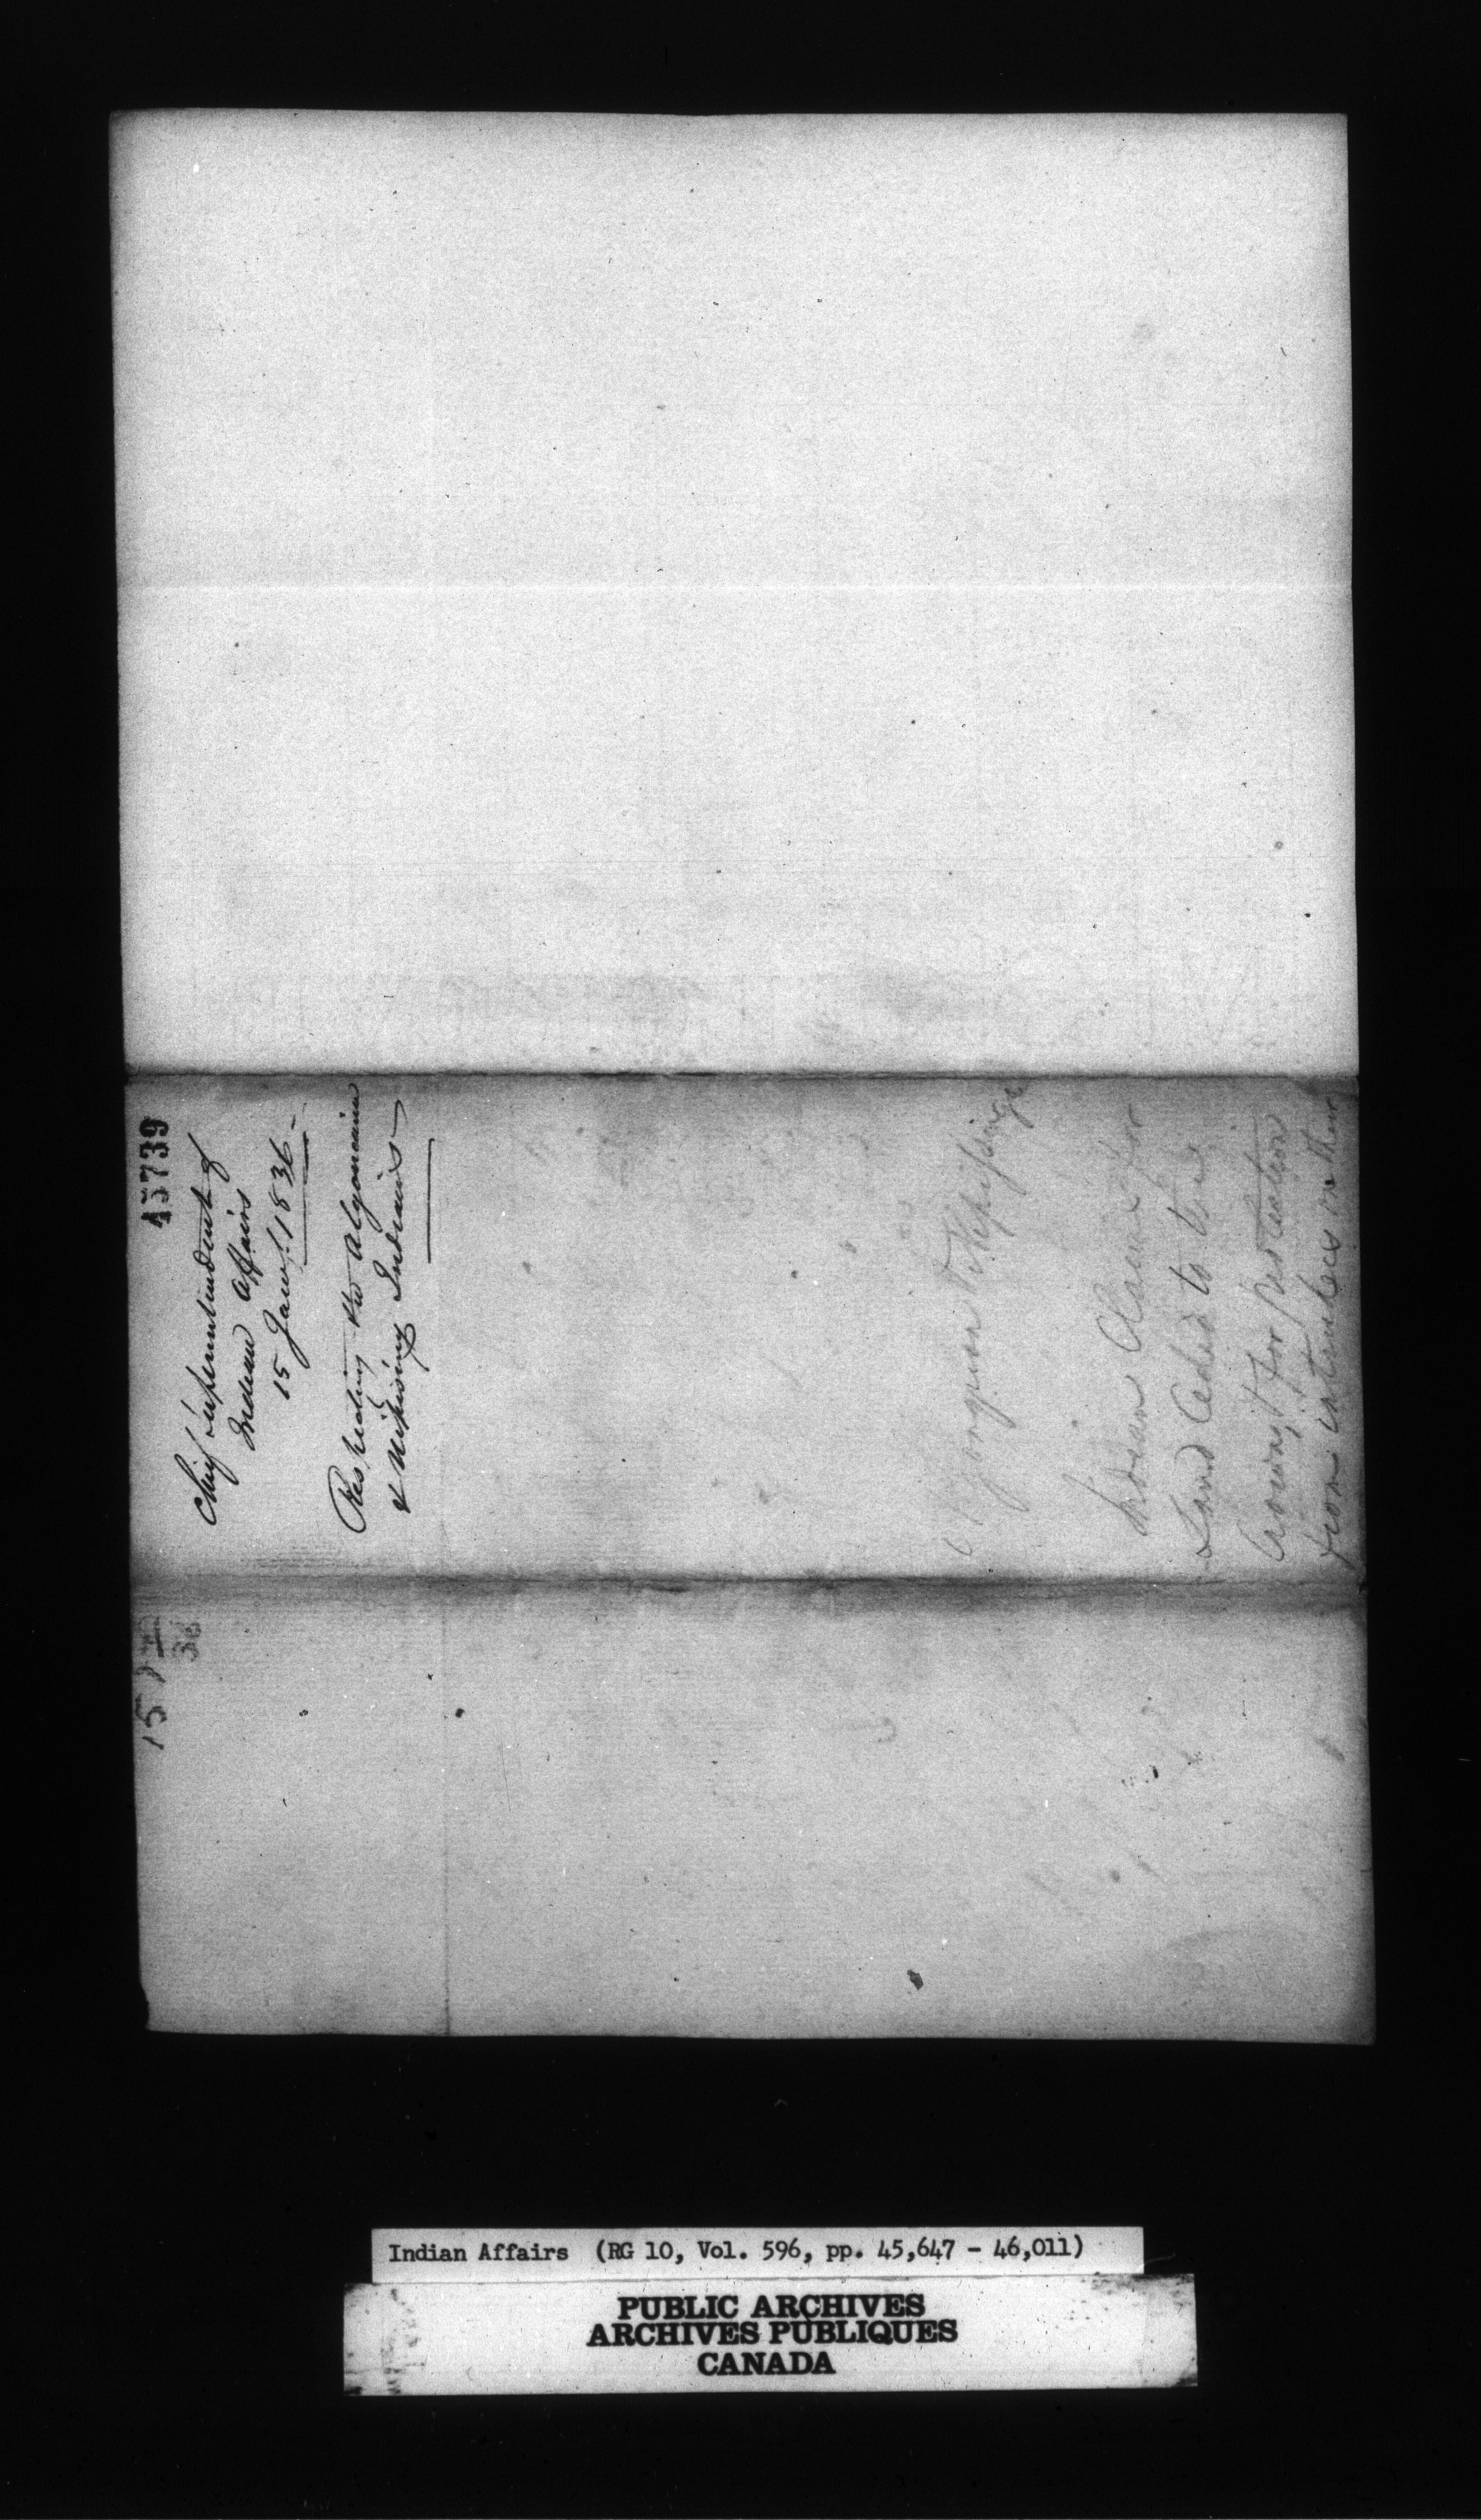 45739
Chief Superintendent of
Indian Affairs
15 Jany. 1836 -
Respecting the Algonquin
& Nipissing Indians -
Algonquin & Nipissingue
Indian Claims for
Land Ceded to the
Crown, & for protection
from intruders on their
15
36
Indian Affairs (RG 10, Vol. 596, pp. 45,647 - 46,011)
PUBLIC ARCHIVES
ARCHIVES PUBLIQUES
CANADA